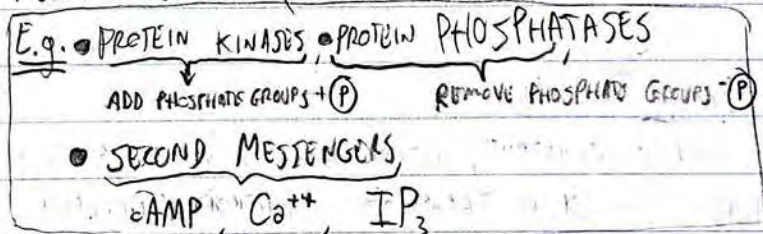 E.g. • PROTEIN KINASES, • PROTEIN PHOSPHATASES
ADD PHOSPHATE GROUPS +Ⓟ REMOVE PHOSPHATE GROUPS -Ⓟ
• SECOND MESSENGERS
cAMP, Ca⁺⁺, IP₃